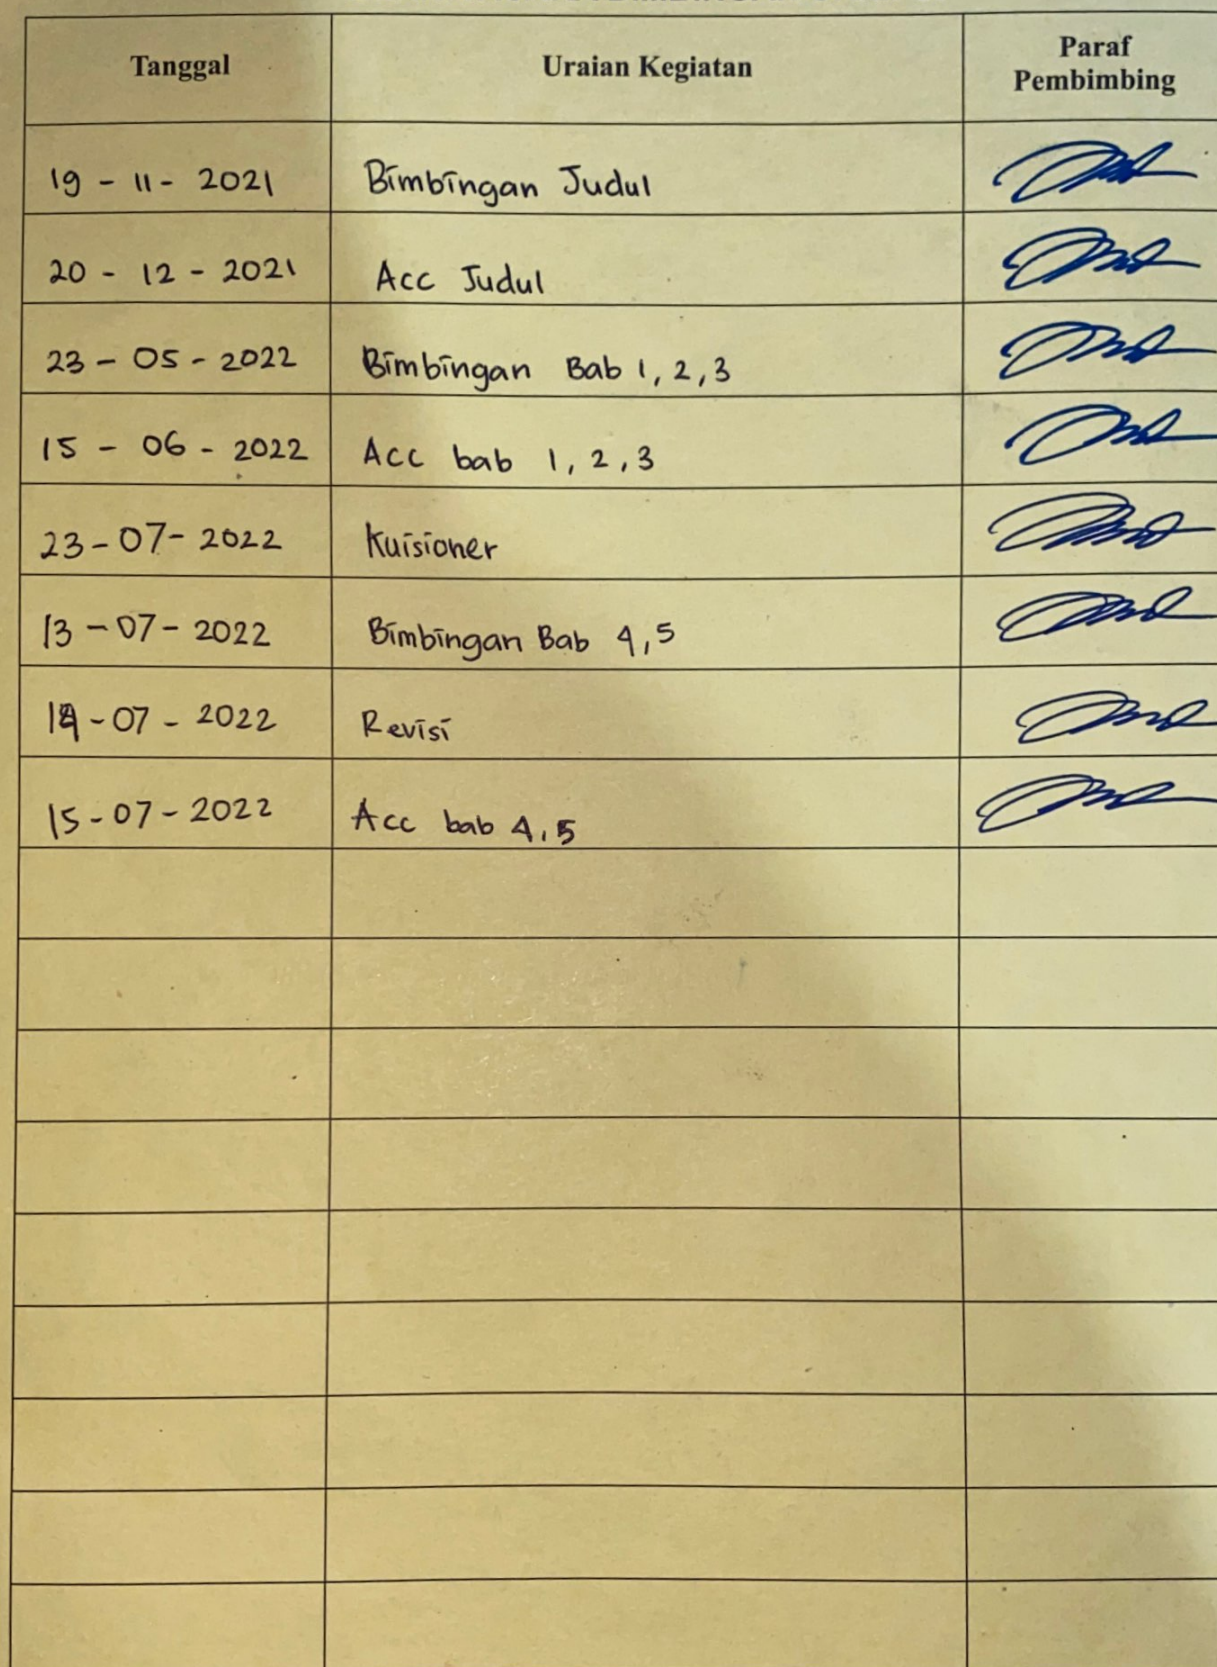 Tanggal Uraian Kegiatan Paraf
Pembimbing
19 - 11 - 2021 Bimbingan Judul
20 - 12 - 2021 Acc Judul
23 - 05 - 2022 Bimbingan Bab 1, 2, 3
15 - 06 - 2022 Acc bab 1, 2, 3
23 - 07 - 2022 Kuisioner
13 - 07 - 2022 Bimbingan Bab 4, 5
14 - 07 - 2022 Revisi
15 - 07 - 2022 Acc bab 4, 5